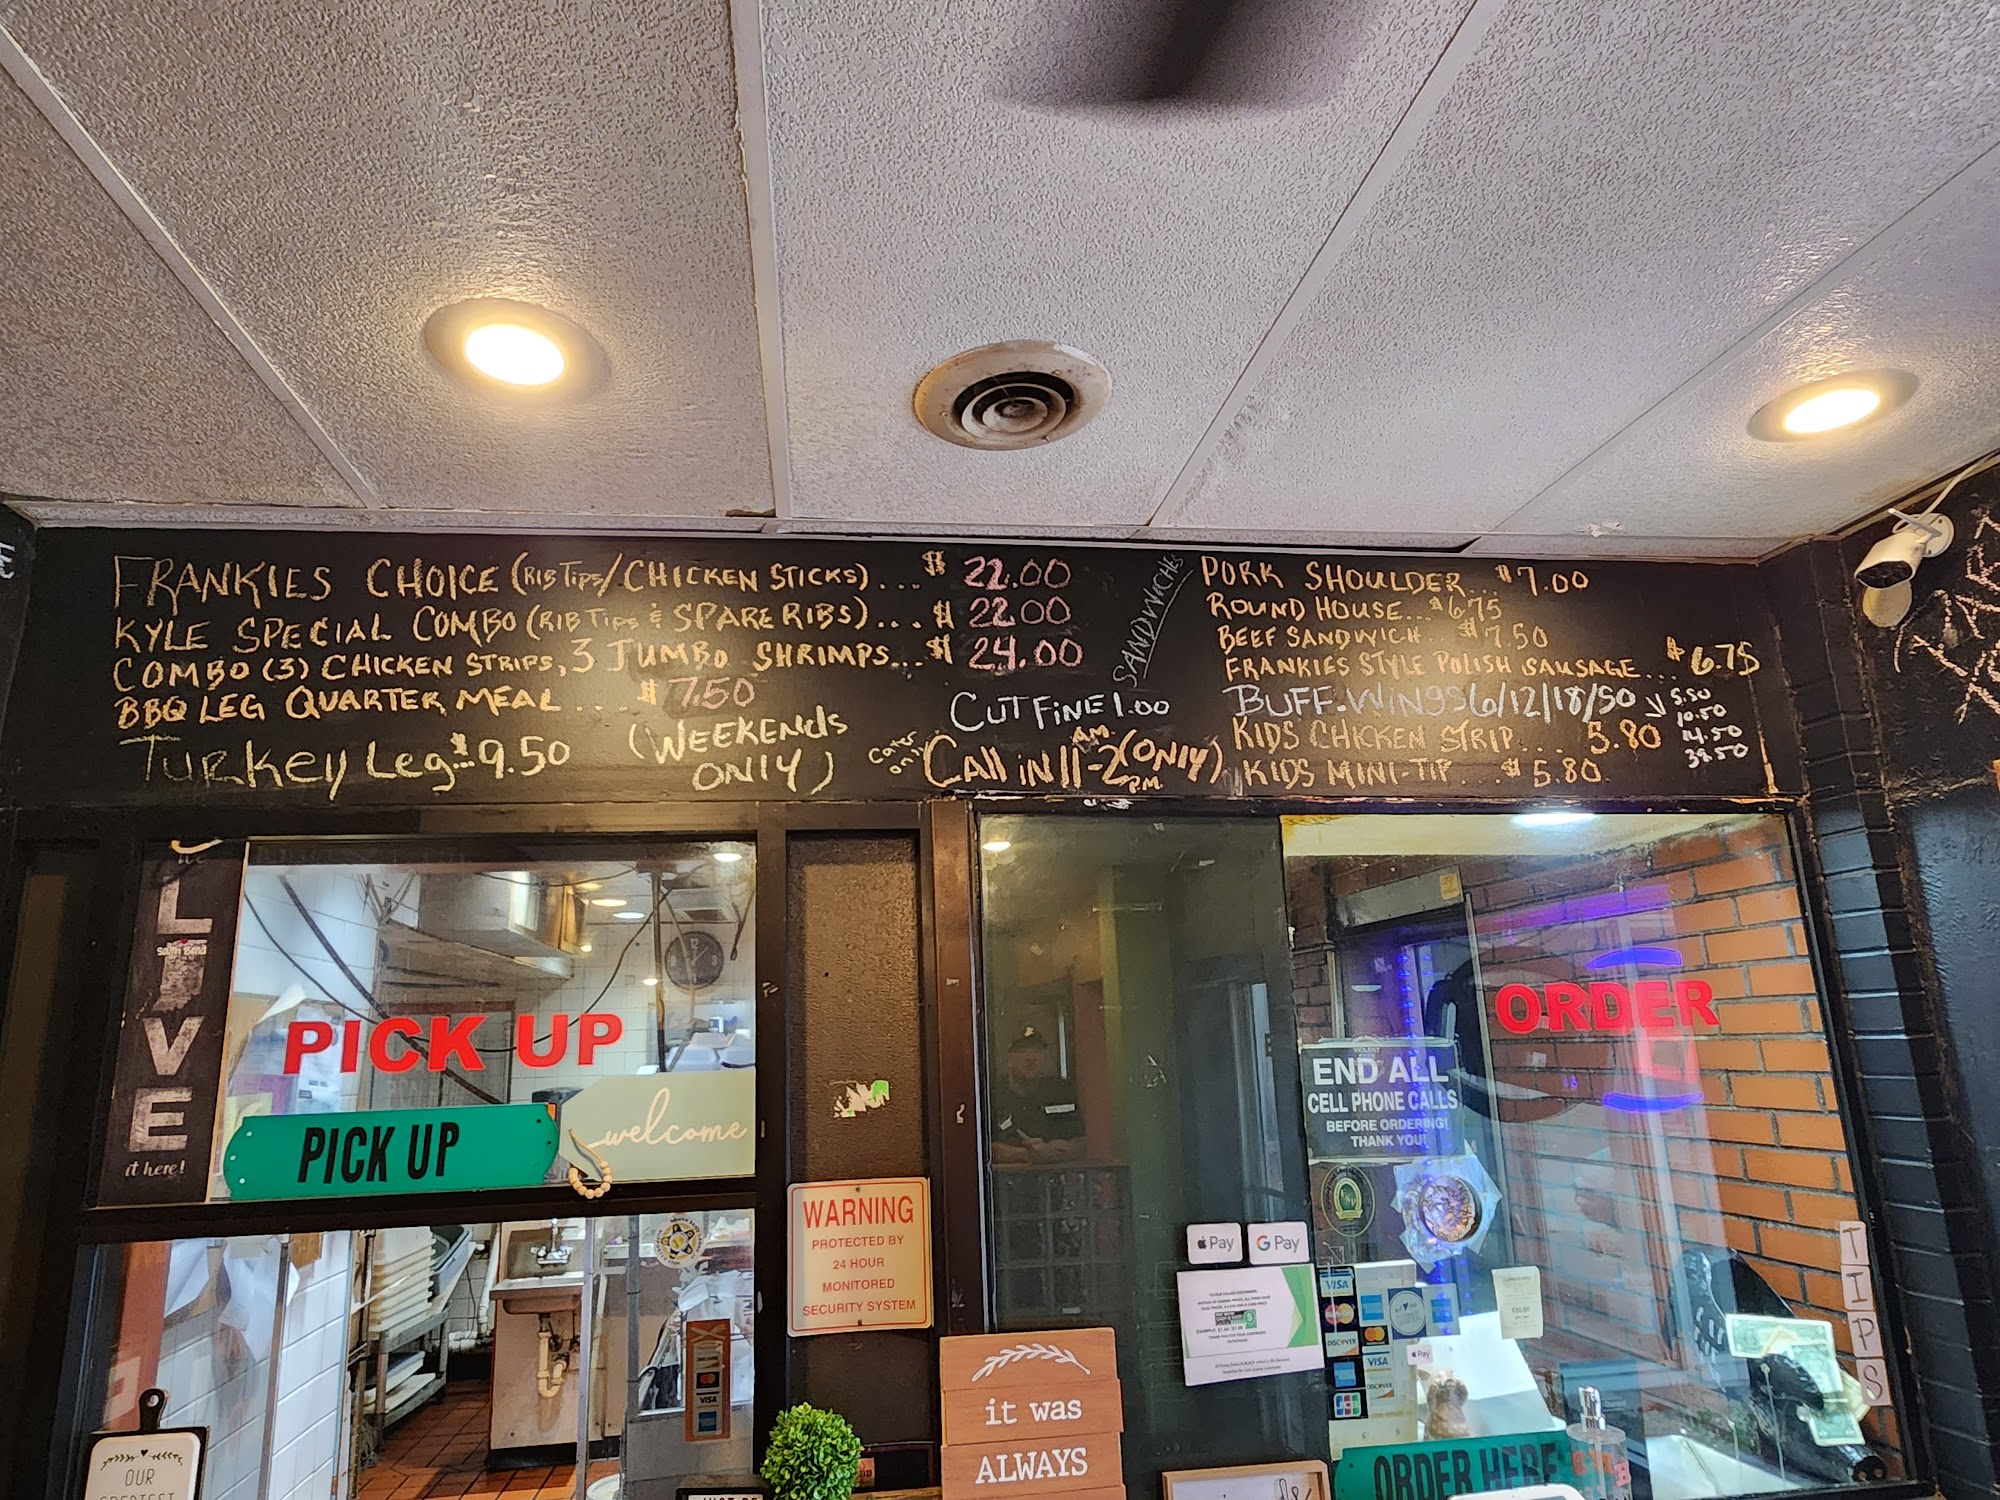 FRANKIES CHOICE (RIB TIPS/CHICKEN STICKS)... $ 22.00
KYLE SPECIAL COMBO (RIB TIPS & SPARE RIBS)... $ 22.00
COMBO (3) CHICKEN STRIPS, 3 JUMBO SHRIMPS... $ 24.00
BBQ LEG QUARTER MEAL .... $ 7.50
TURKEY LEG...$9.50 (WEEKENDS ONLY)
CUT FINE 1.00
CALL IN 11 AM-2 P.M. (ONLY)
SANDWICHES
PORK SHOULDER... $7.00
ROUND HOUSE... $6.75
BEEF SANDWICH... $7.50
FRANKIES STYLE POLISH SAUSAGE... $6.75
BUFF. WINGS 6/12/18/50
5.50
10.50
14.50
38.50
KIDS CHICKEN STRIP.... 5.80
KIDS MINI-TIP...$ 5.80
we
LIVE
South Bend
it here!
PICK UP
PICK UP
welcome
WARNING
PROTECTED BY
24 HOUR
MONITORED
SECURITY SYSTEM
it was
ALWAYS
OUR
ORDER
END ALL
CELL PHONE CALLS
BEFORE ORDERING!
THANK YOU!
Pay
G Pay
VISA
DISCOVER
VISA
DISCOVER
JCB
Pay
TIPS
ORDER HERE
DISCOVER
VISA